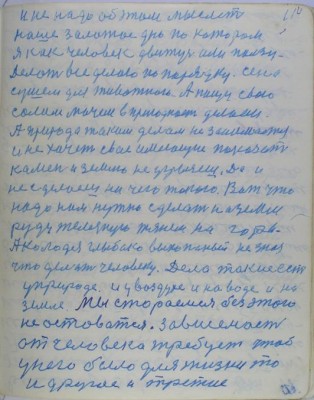 и не надо об этом мыслить
наше золотое дно по котором
я как человек движусь или
делать все делаво по порядку. сено
сушем для животного. А пищу свою
солим мочем в природном делами.
А природа таким делам не занимается
и не хочет свое имеющие показать
камен и землю не
не сделаем ни чего такого. Вот что
надо нам нужно сделать на земли
руду железную тянем на гора.
А колодез глыбако выкопаный не зная
что делать человеку. Дела такие есть
у природе. и у воздухе и на воде и на
земле Мы стораемся без этого
не остоватся. Зависемость
от человека требует чтоб
у него было для жизни то
и другое и третие